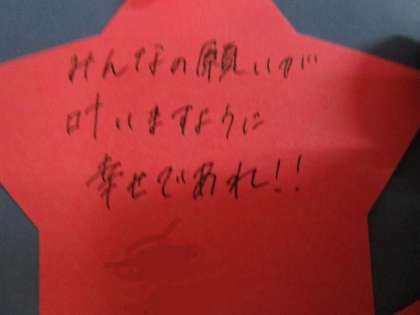 みんなの願いが
叶いますように
幸せであれ!!